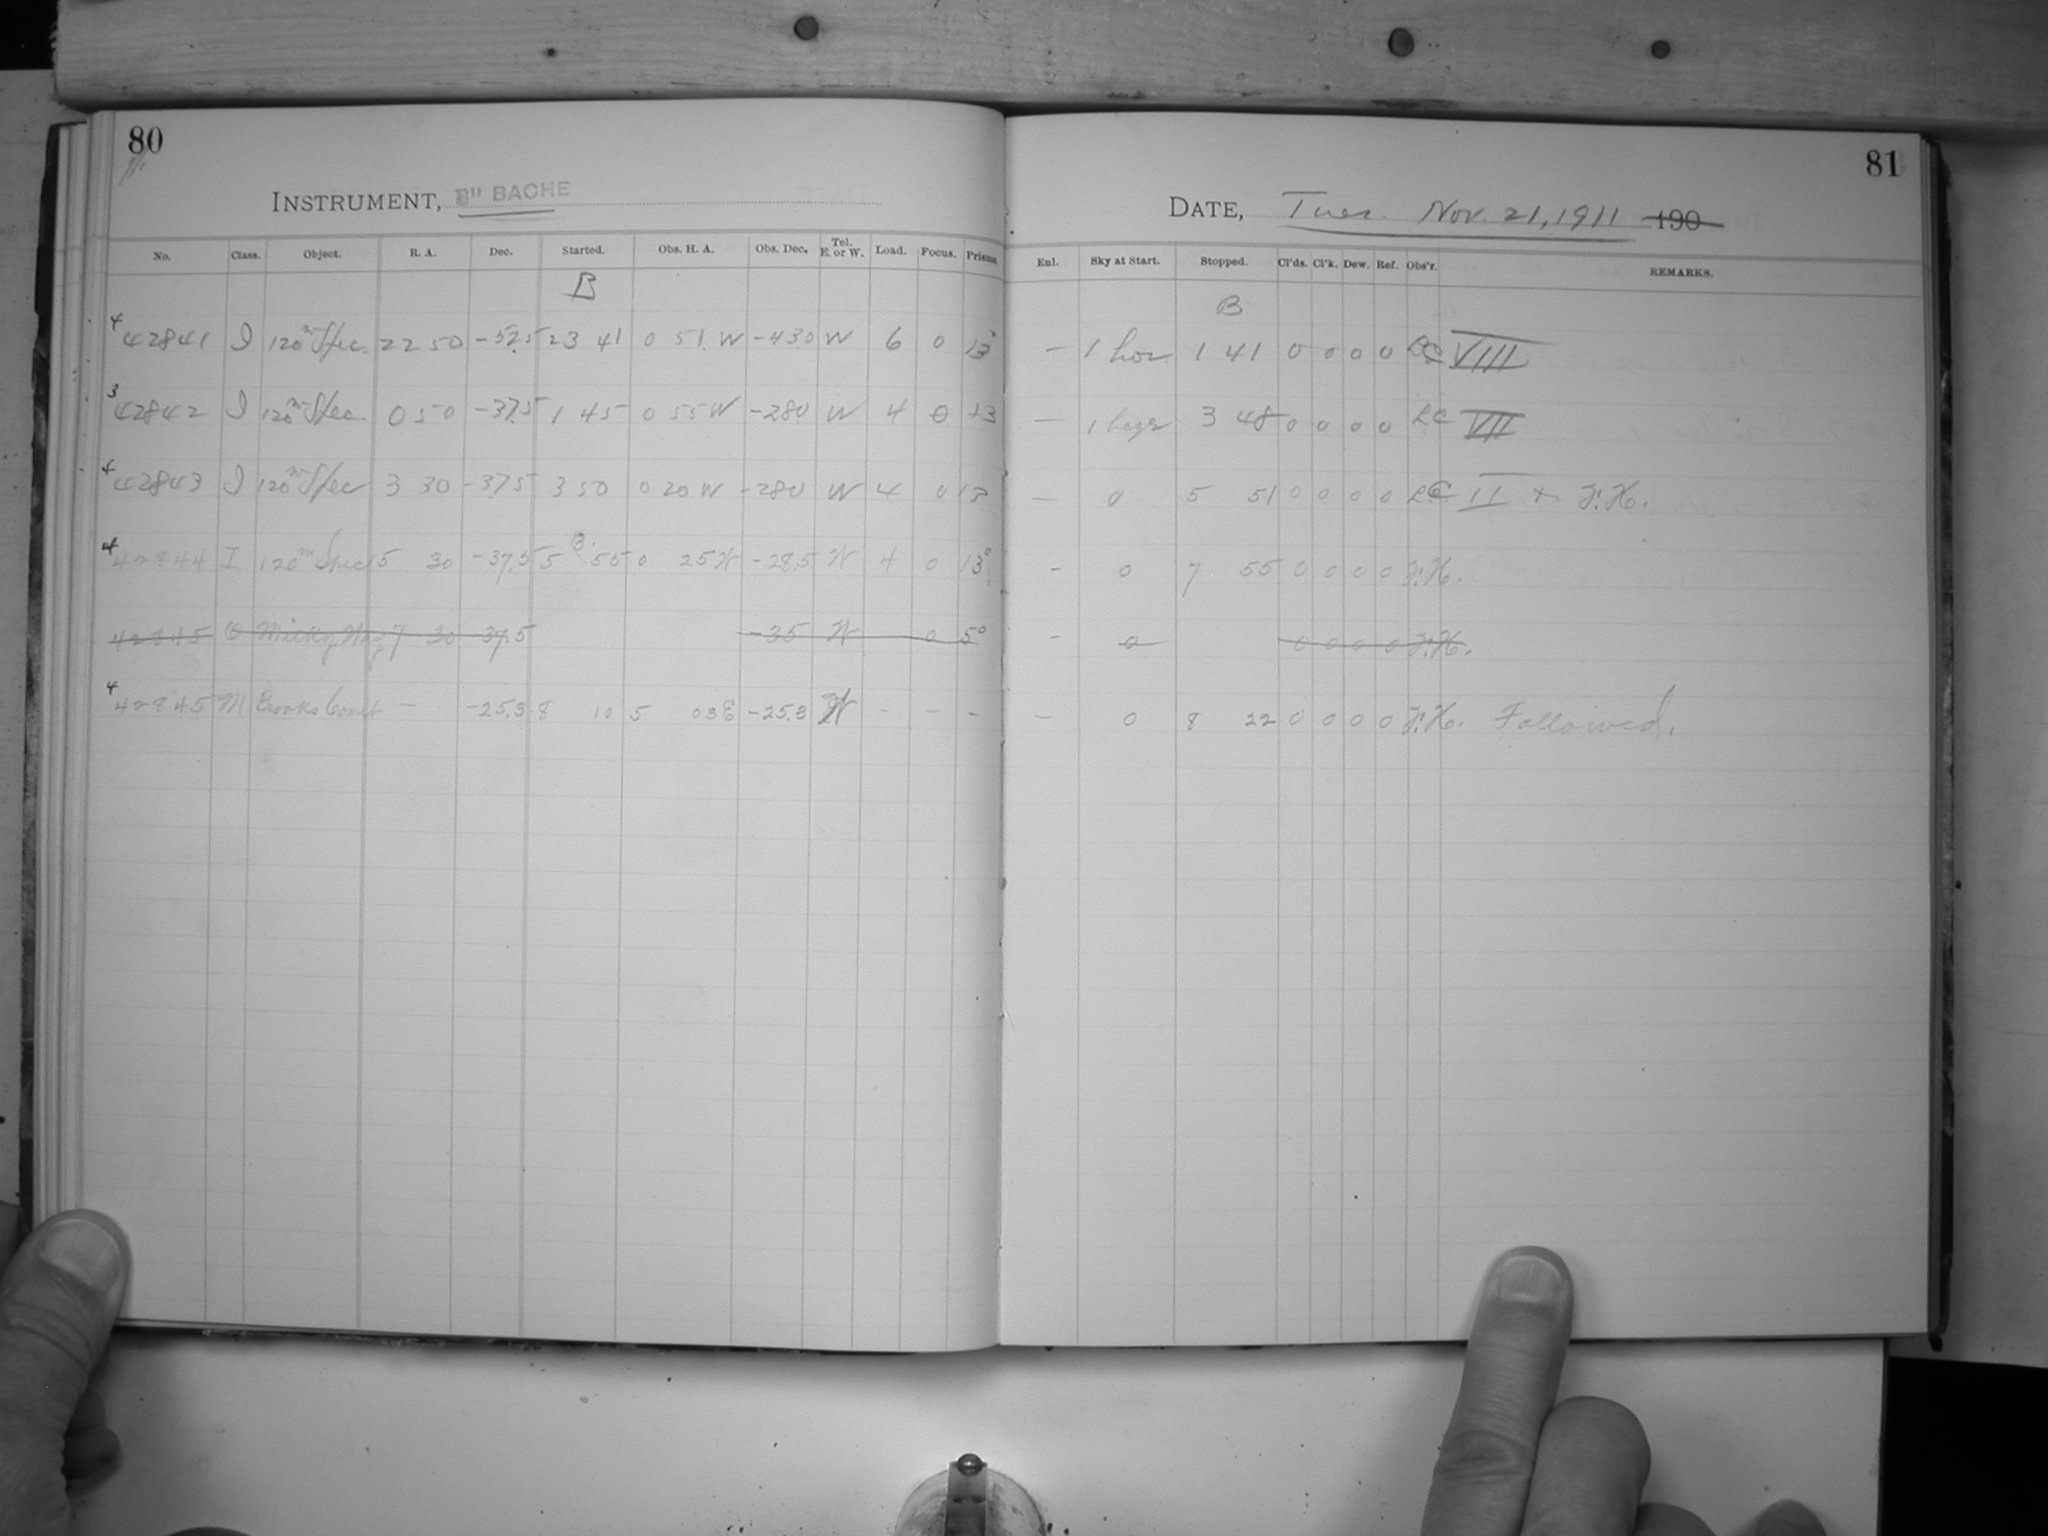 80
81
INSTRUMENT, 8" BACHE
DATE, Tues. Nov. 21, 1911 190
No. Class. Object. R. A. Dec. Started. Obs. H. A. Obs. Dec. Tel. E. or W. Load. Focus. Prisms. Enl. Sky at Start. Stopped. Cl'ds. Cl'k. Dew. Ref. Obs'r. REMARKS.
B B
4 42841 I 120m Spec. 22 50 -52.5 23 41 0 51 W -430 W 6 0 13° — 1 hor 1 41 0 0 0 0 LC VIII
3 42842 I 120m Spec. 0 50 -37.5 1 45 0 55 W -280 W 4 0 13 — 1 3 48 0 0 0 0 LC VII
4 42843 I 120m Spec 3 30 -375 3 50 0 20 W -280 W 4 0 13 — 0 5 51 0 0 0 0 LC II + F.H.
4 42844 I 120m Spec 5 30 -37.5 5 B. 55 0 25 W -28.5 W 4 0 13° - 0 7 55 0 0 0 0 F.H.
42845 Milky Way 7 30 -37.5 -35 W 0 5° - 0 0 0 0 0 F.H.
4 42845 M Brooks Comet — -25.3 8 10 5 03 E -25.3 W - - - — 0 8 22 0 0 0 0 F.H. Followed.